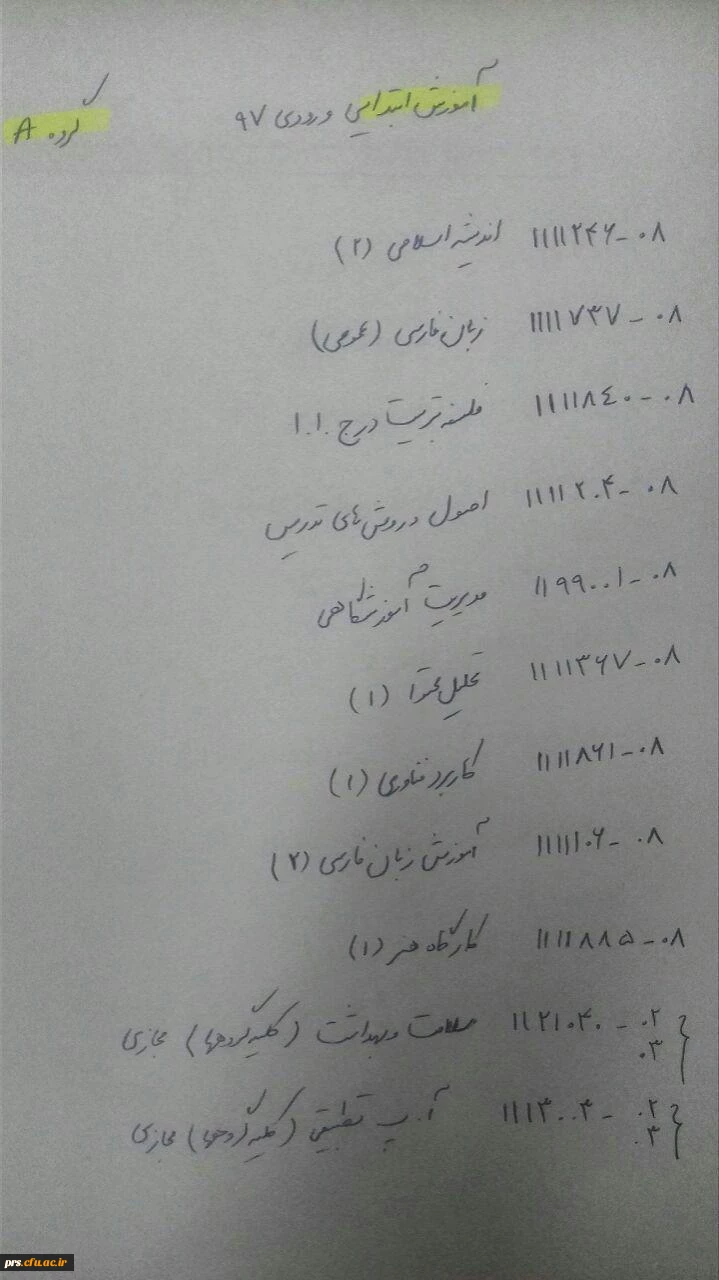 آموزش ابتدایی ورودی ۹۷
گروه A
۱۱۱۱۲۴۶-۰۸ اندیشه اسلامی (۲)
۱۱۱۱۷۳۷-۰۸ زبان فارسی (عمومی)
۱۱۱۱۸۴۰-۰۸ فلسفه تربیت در ج.ا.ا
۱۱۱۱۲۰۴-۰۸ اصول و روش های تدریس
۱۱۹۹۰۰۱-۰۸ مدیریت آموزشگاهی
۱۱۱۱۳۶۷-۰۸ تحلیل محتوا (۱)
۱۱۱۱۸۶۱-۰۸ کاربرد فناوری (۱)
۱۱۱۱۱۰۶-۰۸ آموزش زبان فارسی (۲)
۱۱۱۱۸۸۵-۰۸ کارگاه هنر (۱)
۱۱۲۱۰۴۰-۰۲ سلامت و بهداشت (کلیه گروهها) مجازی
۰۳
۱۱۱۳۰۰۳-۰۲ آ.پ تطبیقی (کلیه گروهها) مجازی
۰۳
prs.cfu.ac.ir